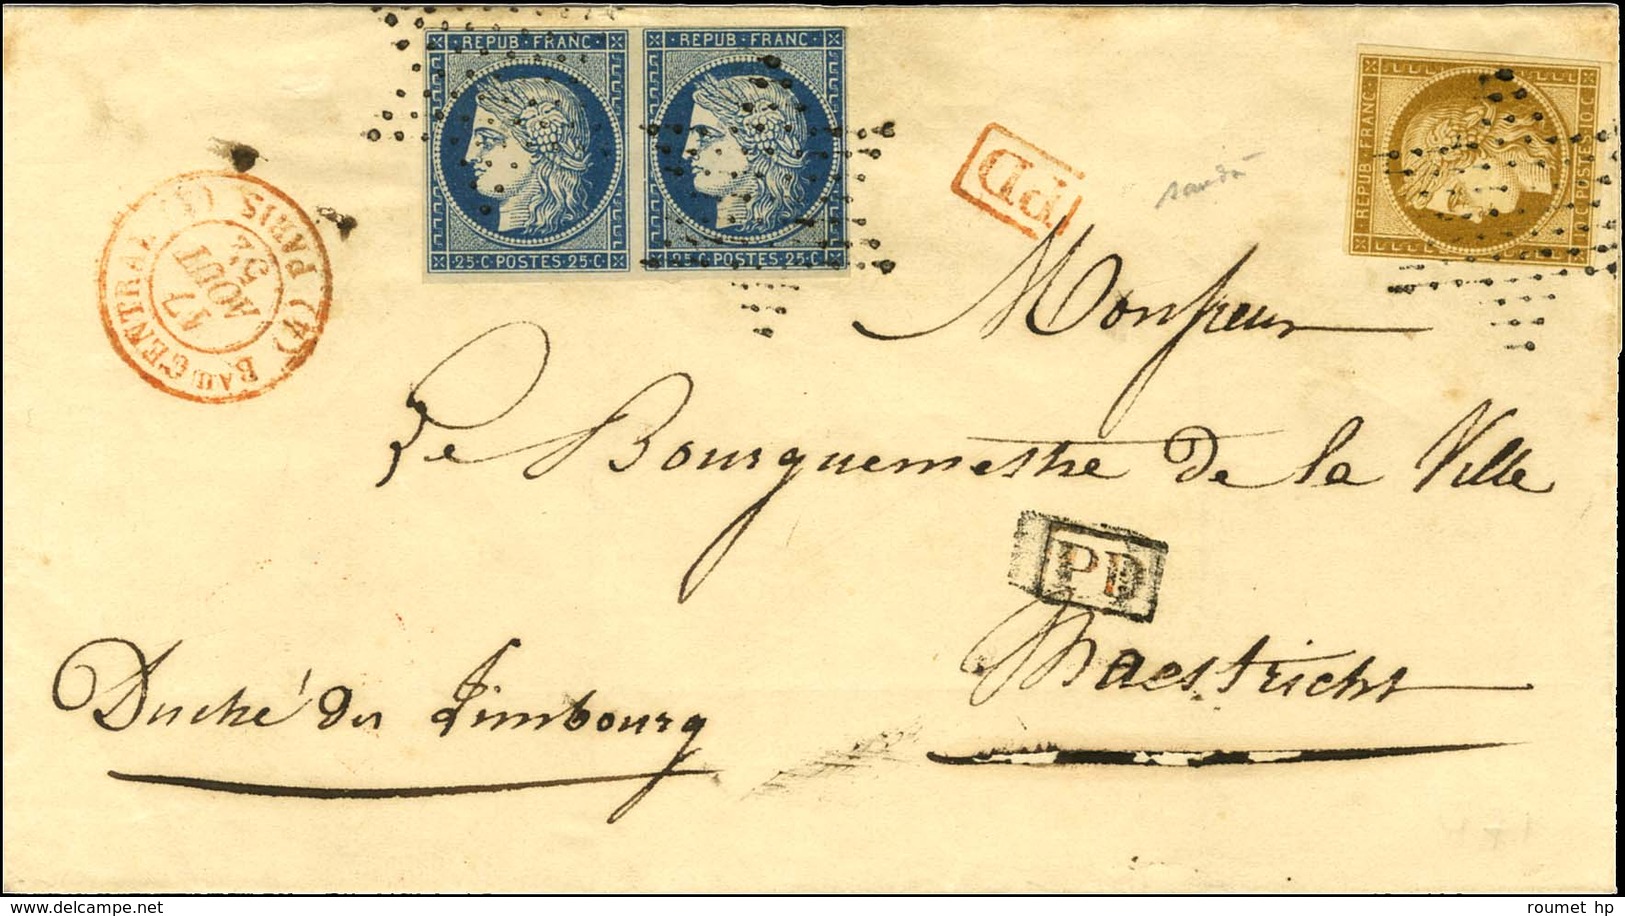 REPUB · FRANC ·
25·C·POSTES·25·C·
REPUB · FRANC ·
25·C·POSTES·25·C·
REPUB · FRANC ·
10·C·POSTES·10·C·
(4) BAU CENTRAL (4) PARIS
17
AOUT
52
PD
Monsieur
Le Bourguemestre de la Ville
PD
Maestricht
Duché du Limbourg
roumet hp